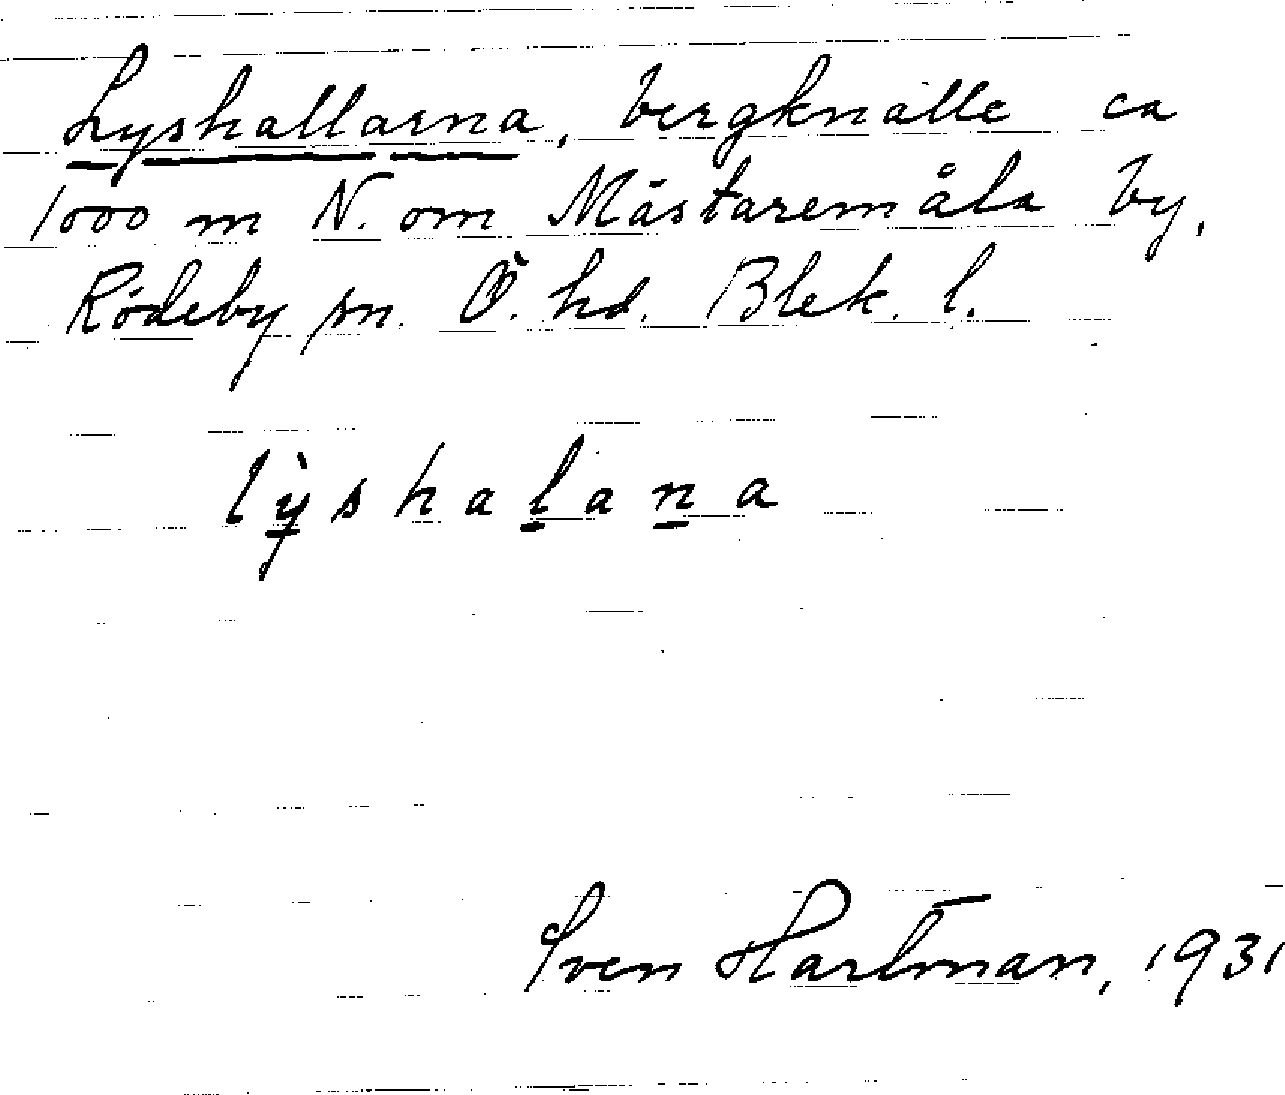 Lyshallarna, bergknalle ca
1000 m N. om Mästaremåla by,
Rödeby sn. Ö. hd. Blek. l.
lỳshalana
Sven Hartman, 1931